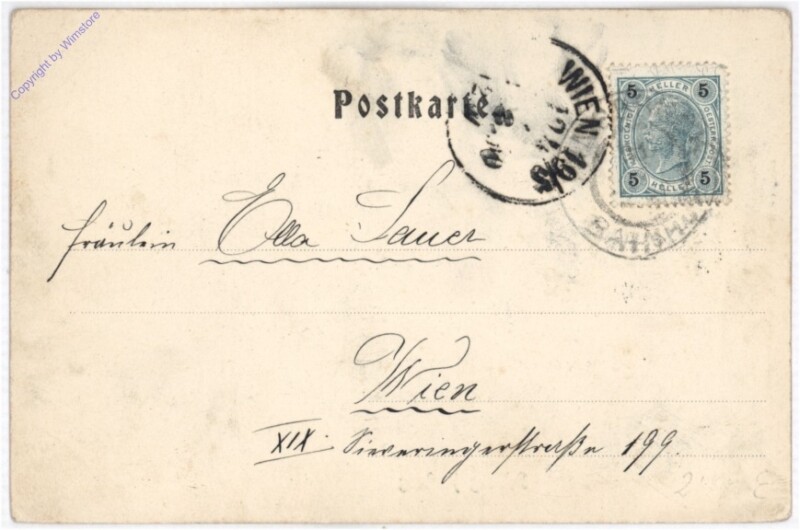 Copyright by Wimstore
Postkarte
WIEN 19/3
5 HELLER 5
5 HELLER 5
Fräulein Ella Sauer
Wien
XIX. Sieveringerstraße 199.